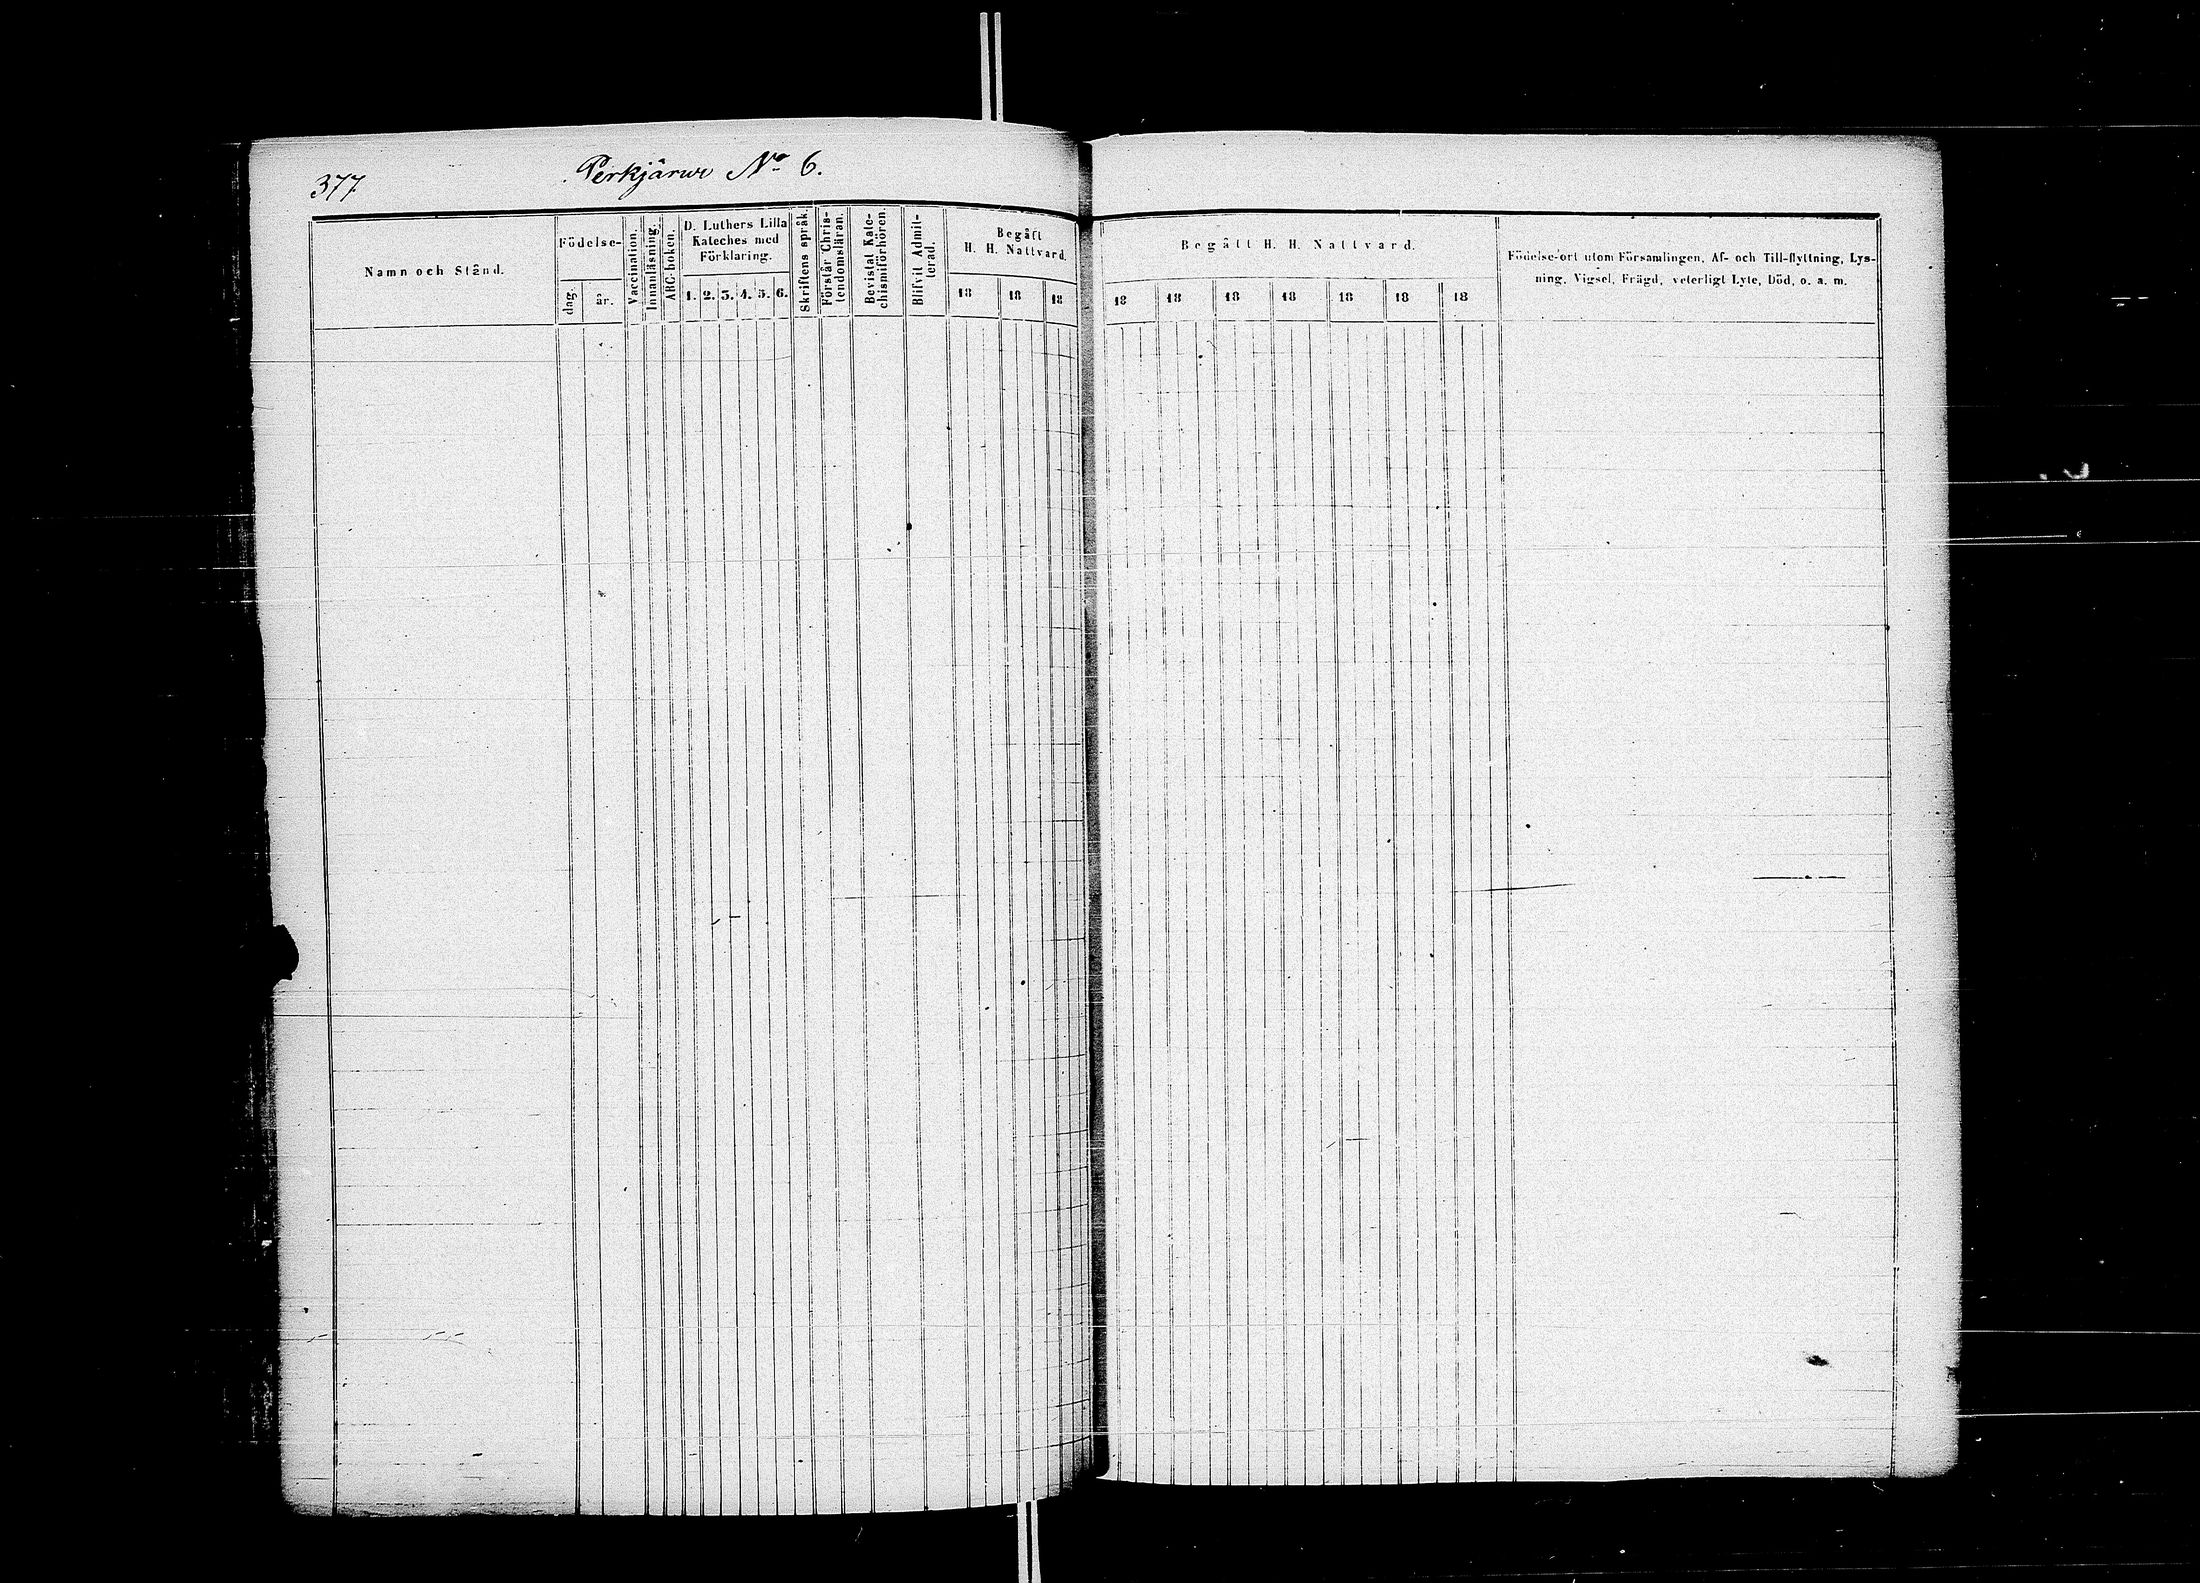 377
Perkjärwi No 6.
Namn och Stånd.
Födelse-
dag.
år.
Vaccination.
Innanläsning.
ABC-boken.
D. Luthers Lilla
Kateches med
Förklaring.
1. 2. 3. 4. 5. 6.
Skriftens språk.
Förstår Chris-
tendomsläran.
Bevistat Kate-
chismiförhören.
Blifvit Admit-
terad.
Begått
H. H. Nattvard.
18 18 18
Begått H. H. Nattvard.
18 18 18 18 18 18 18
Födelse-ort utom Församlingen, Af- och Till-flyttning, Lys-
ning, Vigsel, Frägd, veterligt Lyte, Död, o. a. m.